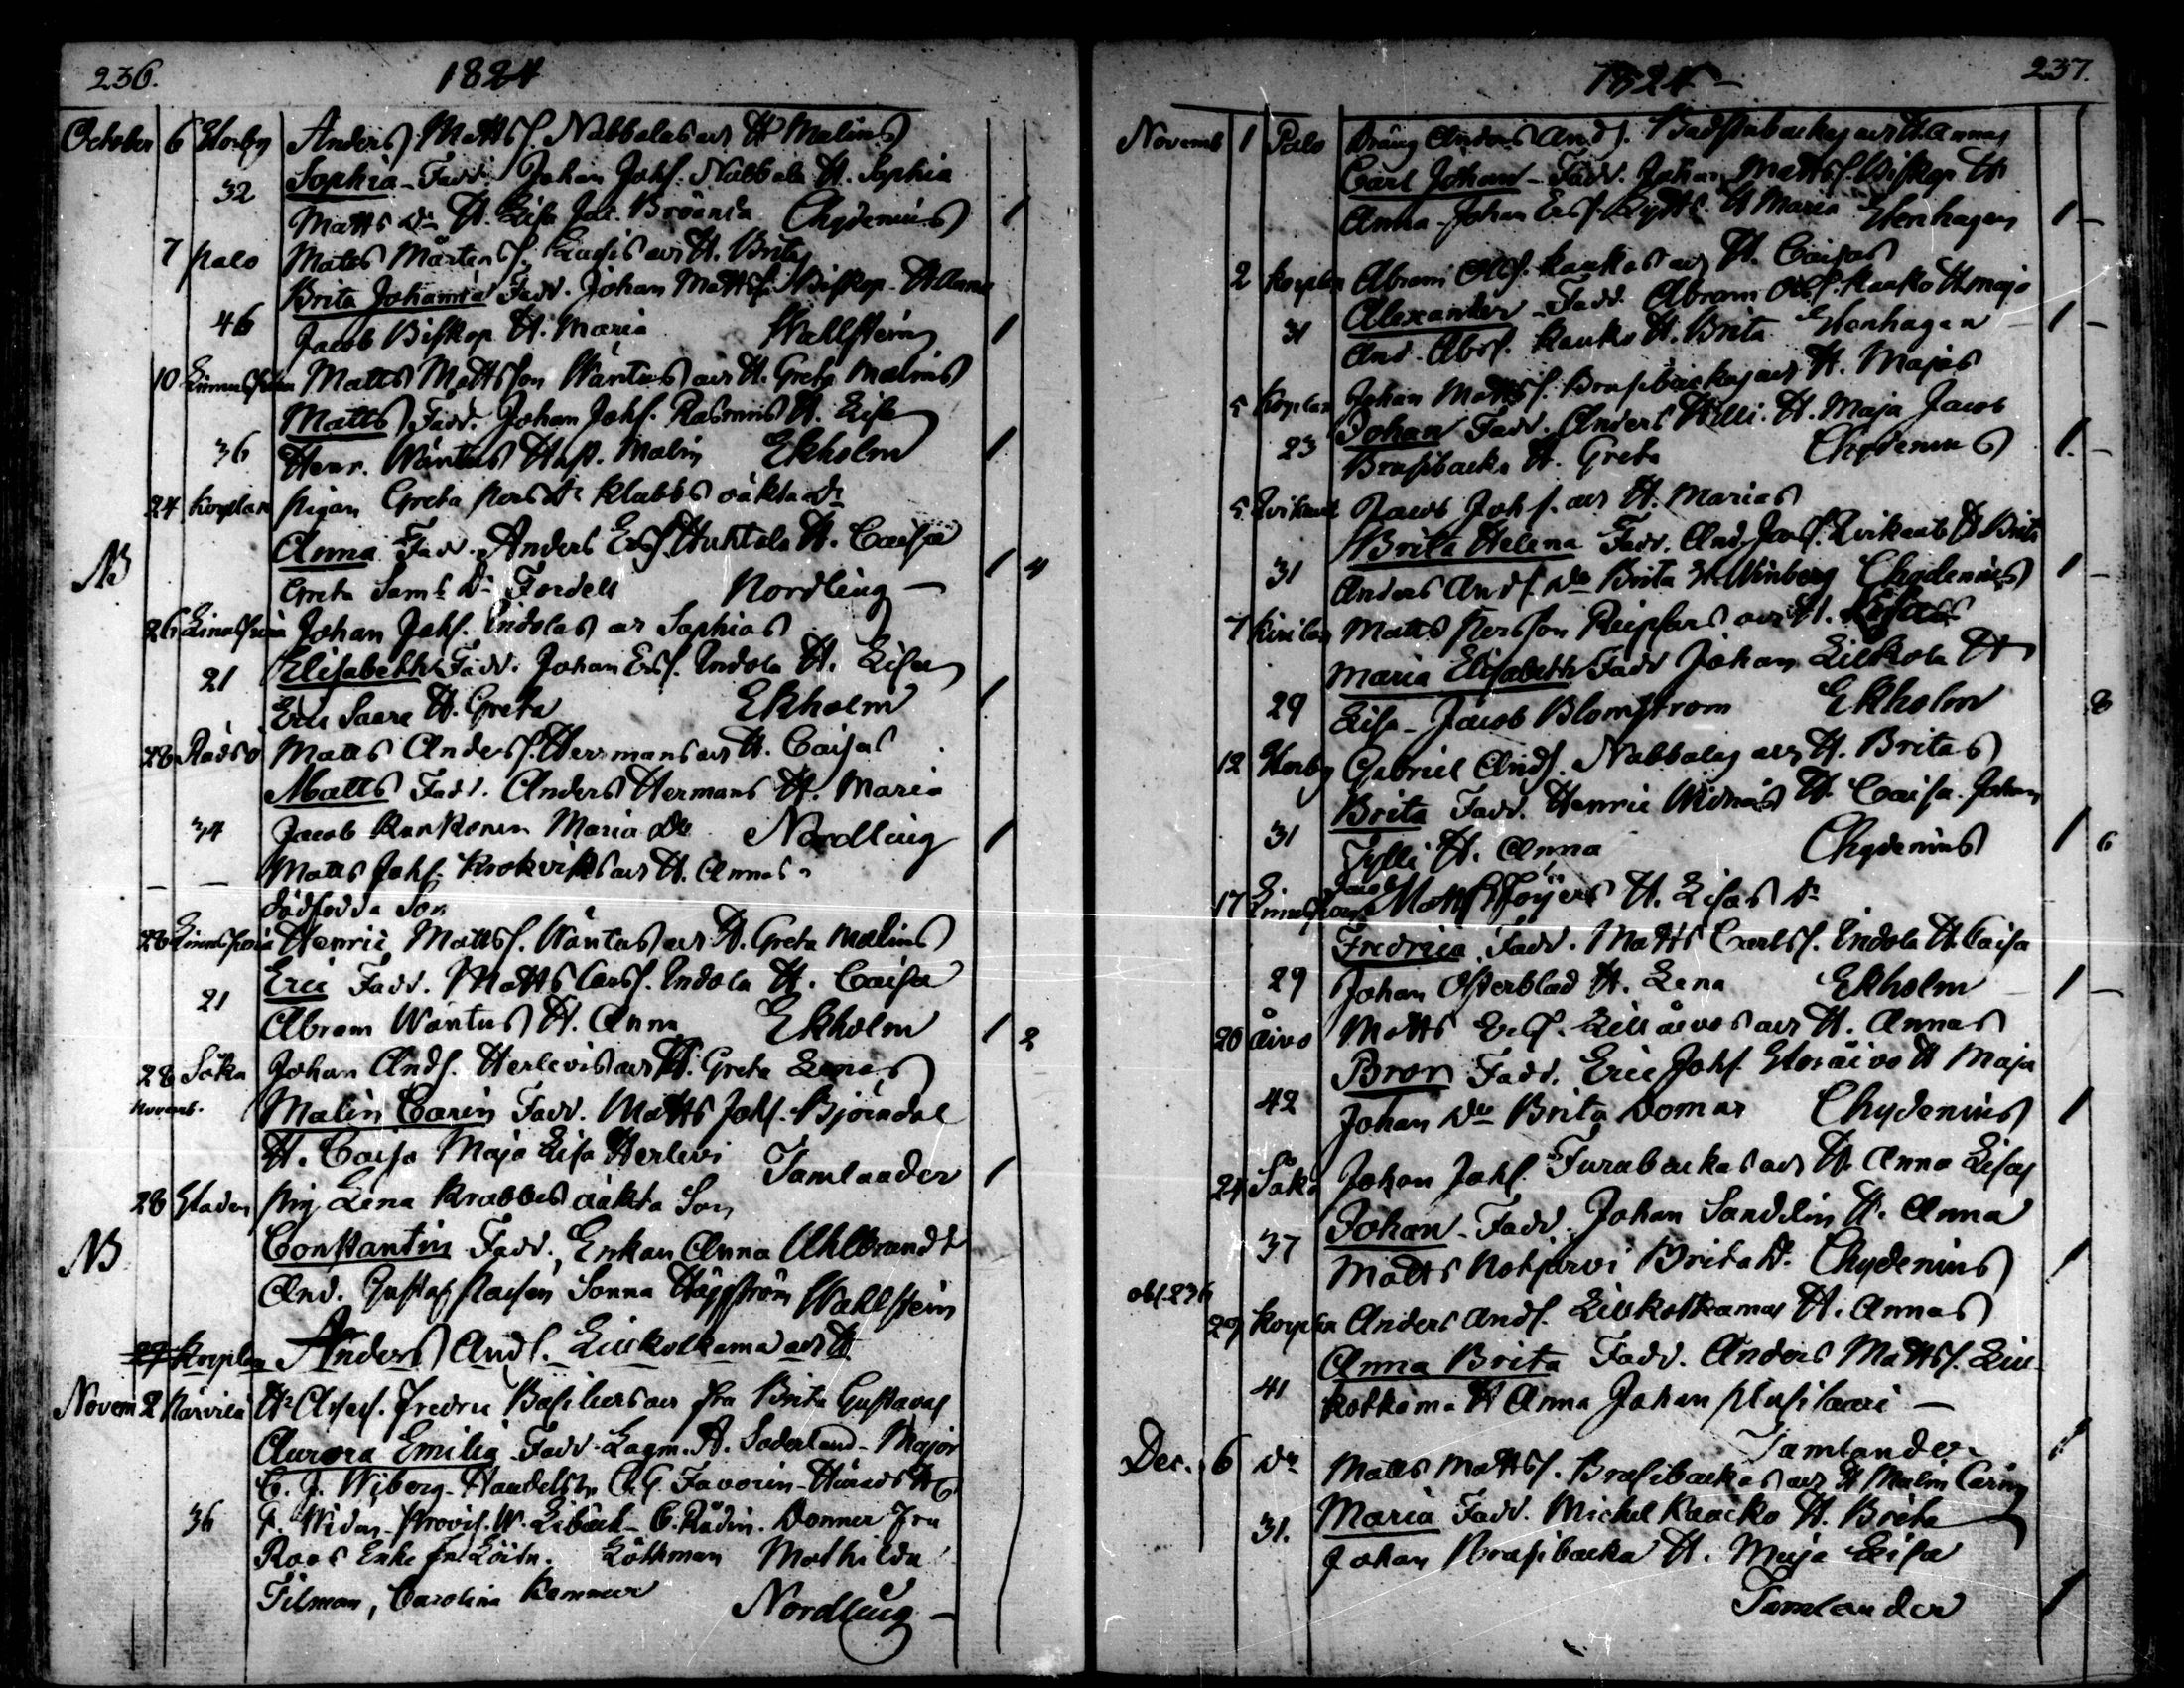 236. 1824
October 6 Storby Anders Mattsf. Nabbalas och H. Malins
Sophia - Fadd. Johan Johsf. Nabbala H. Sophia
32 Matts Do H. Lisa Jac. Brännda Chydenius 1
7 Palo Matts Mårtensf. och H. Britas
Brita Johanna Fadd. Johan Mattsf. Biskop - H. Anna
46 Jacob Biskop H. Maria Wallstein 1
10 Matts Mattsson Wäntus och H. Greta Malins
Matts Fadd. Johan Johsf. Rasmus H. Lisa
36 Henr. Wäntus Hust. Malin Ekholm 1
24 Korplax Pigan Greta Persdr Klabbs oäkta dr
NB Anna Fadd. Anders Ersf. Huhtala H. Caisa
Greta Saml. Dr Fordell Nordling - 1 4
26 Johan Johsf. Indolas och Sophias
Elisabeth Fadd. Johan Ersf. Indola H. Lisa
21 Eric Saare H. Greta Ekholm 1
28 Rådsö Matts Andersf. Hermans och H. Caisas
Matts Fadd. Anders Hermans H. Maria
34 Jacob Kankonen Maria Do Nordling 1
— — Matts Johsf. Krokviks och H. Annas
dödfödda Son
28 Henric Mattsf. Wäntus och H. Greta Malins
Eric Fadd. Matts Carlsf. Indola H. Caisa
21 Abram Wäntus H. Anna Ekholm 1 2
28 Såka Johan Andsf. Herlevis och H. Greta Lenas
Novemb. Malin Carin Fadd. Matts Johsf. Björndal
H. Caisa Maja Lisa Herlevi Tamlander 1
28 Staden Pig. Lena Krabbes oäkta Son
NB Constantin Fadd. Enkan Anna Ahlbrandt
And. Gustaf Sanna Häggström Wahlstein
29 Korplax Anders Andsf. Lillkotkama och H.
Novem 2 Hr Fredric Basiliers och Fru Brita Gustavas
Aurora Emilia Fadd. Lagm. A. Söderland - Major
C. J. Wiberg - Handelsm. C. G. Favorin - Härads H
36 G. Widen - Provis. W. Libäck - C. Rådin. Donner Fru
Roos Enke Fru Löthman Mathilda
Tilman, Carolina Kemmer Nordling -
1824 - 237.
Novemb 1 Palo Dräng Anders Andsf. Badstubackas och H. Annas
Carl Johan - Fadd. Johan Mattsf. Biskop H.
Anna - Johan Ersf. H. Maria Stenhagen 1 -
2 Korplax Abram Olsf. Kaukos och H. Caisas
Alexander - Fadd. Abram Olsf. Kauko H. Maja
31 And. Abrsf. Kauko H. Brita Stenhagen - 1 -
5 Korplax Johan Mattsf. Brasibackas och H. Majas
Johan Fadd. Anders H. Maja Jacob
23 Brasibacka H. Greta Chydenius 1. -
5 Jacob Johsf. och H. Marias
Brita Helena Fadd. And. H. Brita
31 Anders Andsf. Do Brita H. Winberg Chydenius 1 -
7 Matts Persson och H. Lisas
Maria Elisabeth Fadd Johan Lillkola H.
29 Lisa - Jacob Blomström Ekholm 8
12 Storby Gabriel Andsf. Nabbalas och H. Britas
Brita Fadd. Henric Widnäs H. Caisa. Johan
31 Jylli H. Anna Chydenius 1 6
17 Jacob Mattsf. H. Lisas Dr
Fredrica Fadd. Matts Carlsf. Indola H. Caisa
29 Johan Österblad H. Lena Ekholm - 1 -
20 Åivo Matts Ersf. Lillåivos och H. Annas
Bror Fadd. Eric Johsf. Storåivo H Maja
42 Johan Do Brita Domar Chydenius 1
21 Såka Johan Johsf. Furubackas och H. Anna Lisas
Johan - Fadd. Johan Sandelin H. Anna
37 Matts Brita Do Chydenius 1
obs. 236
29 Korplax Anders Andsf. Lillkotkamas H. Annas
Anna Brita Fadd. Anders Mattsf. Lill-
41 kotkama H Anna Johan —
Tamlander 1
Dec. 6 Do Matts Mattsf. Brasibackas och H Malin Carins
31. Maria Fadd. Michel Kaucko H. Brita
Johan Brasibacka H. Maja Lisa
Tamlander 1